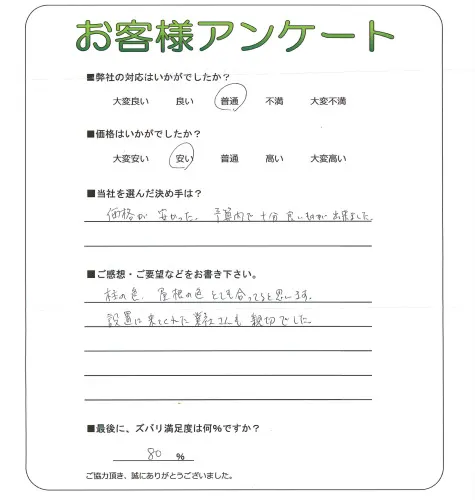 お客様アンケート
■弊社の対応はいかがでしたか？
大変良い 良い 普通 不満 大変不満
■価格はいかがでしたか？
大変安い 安い 普通 高い 大変高い
■当社を選んだ決め手は？
価格が 安かった。予算内で 十分 良い物が 出来ました
■ご感想・ご要望などをお書き下さい。
柱の色、屋根の色 とても合ってると思います。
設置に来てくれた 業者さんも 親切でした。
■最後に、ズバリ満足度は何%ですか？
80 %
ご協力頂き、誠にありがとうございました。